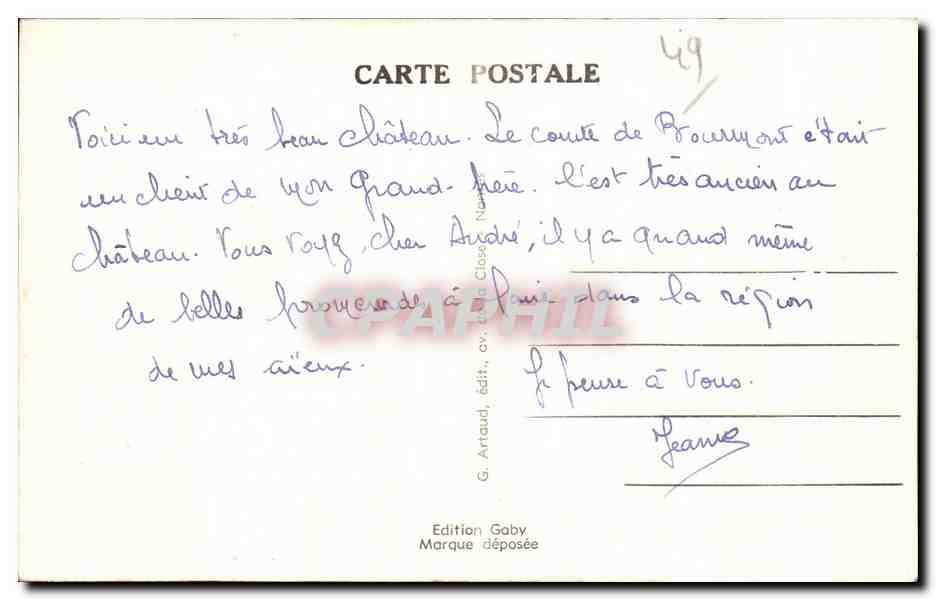 49
CARTE POSTALE
Voici un très beau château. Le comte de Bourmont était
un client de mon Grand-père. C'est très ancien au
château. Vous voyez, cher André, il y a quand même
de belles promenades à faire dans la région
de mes aïeux.
Je pense à vous.
Jeanne
G. Artaud, édit., av. de la Close - Nantes
CPAPHIL
Edition Gaby
Marque déposée